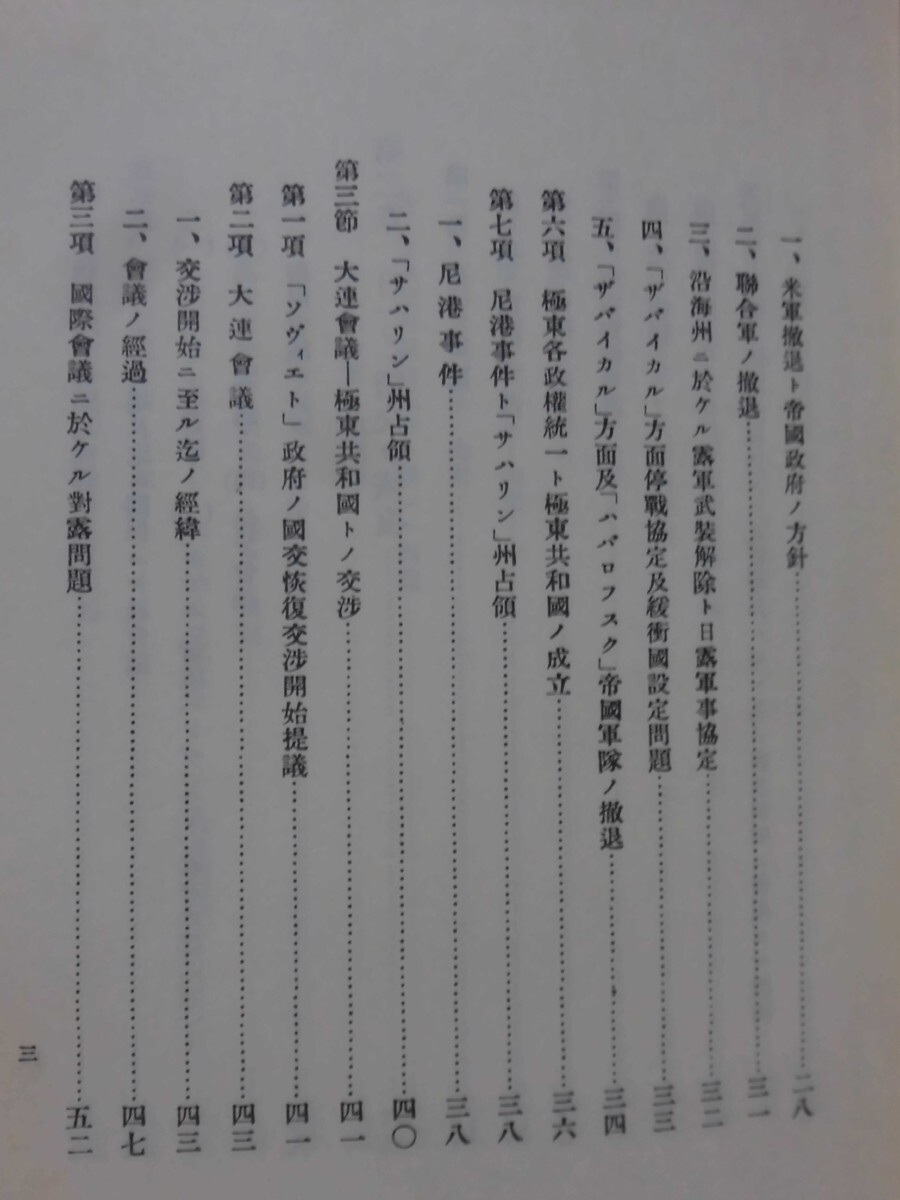 一、米軍撤退ト帝國政府ノ方針……二八
二、聯合軍ノ撤退……三一
三、沿海州ニ於ケル露軍武裝解除ト日露軍事協定……三二
四、「ザバイカル」方面停戰協定及緩衝國設定問題……三三
五、「ザバイカル」方面及「ハバロフスク」帝國軍隊ノ撤退……三四
第六項 極東各政權統一ト極東共和國ノ成立……三六
第七項 尼港事件ト「サハリン」州占領……三八
一、尼港事件……三八
二、「サハリン」州占領……四〇
第三節 大連會議―極東共和國トノ交涉……四一
第一項 「ソヴィエト」政府ノ國交恢復交涉開始提議……四一
第二項 大連會議……四三
一、交涉開始ニ至ル迄ノ經緯……四三
二、會議ノ經過……四七
第三項 國際會議ニ於ケル對露問題……五二
三